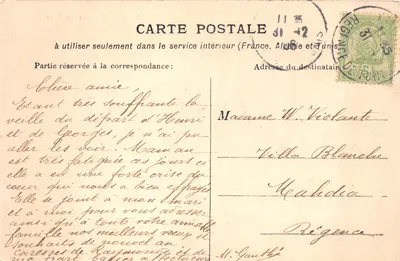 CARTE POSTALE
à utiliser seulement dans le service intérieur (France, Algérie et Tunisie)
Partie réservée à la correspondance:
Adresse du destinataire
Chère amie,
Etant très souffrante la
veille du départ d'Henri
et de Georges, je n'ai pu
aller les voir. Maman
est très fatiguée ces jours ci
elle a eu une forte crise de
cœur qui nous a bien effrayés
Elle se joint à mon mari
et à moi pour vous adresser
ainsi qu'à toute votre aimable
famille nos meilleurs vœux et
souhaits de nouvel an
Caresses de Raymonde et de
ma part
Madame W. Violante
Villa Blanche
Mahdia
Régence
M. Gauthé
31 12